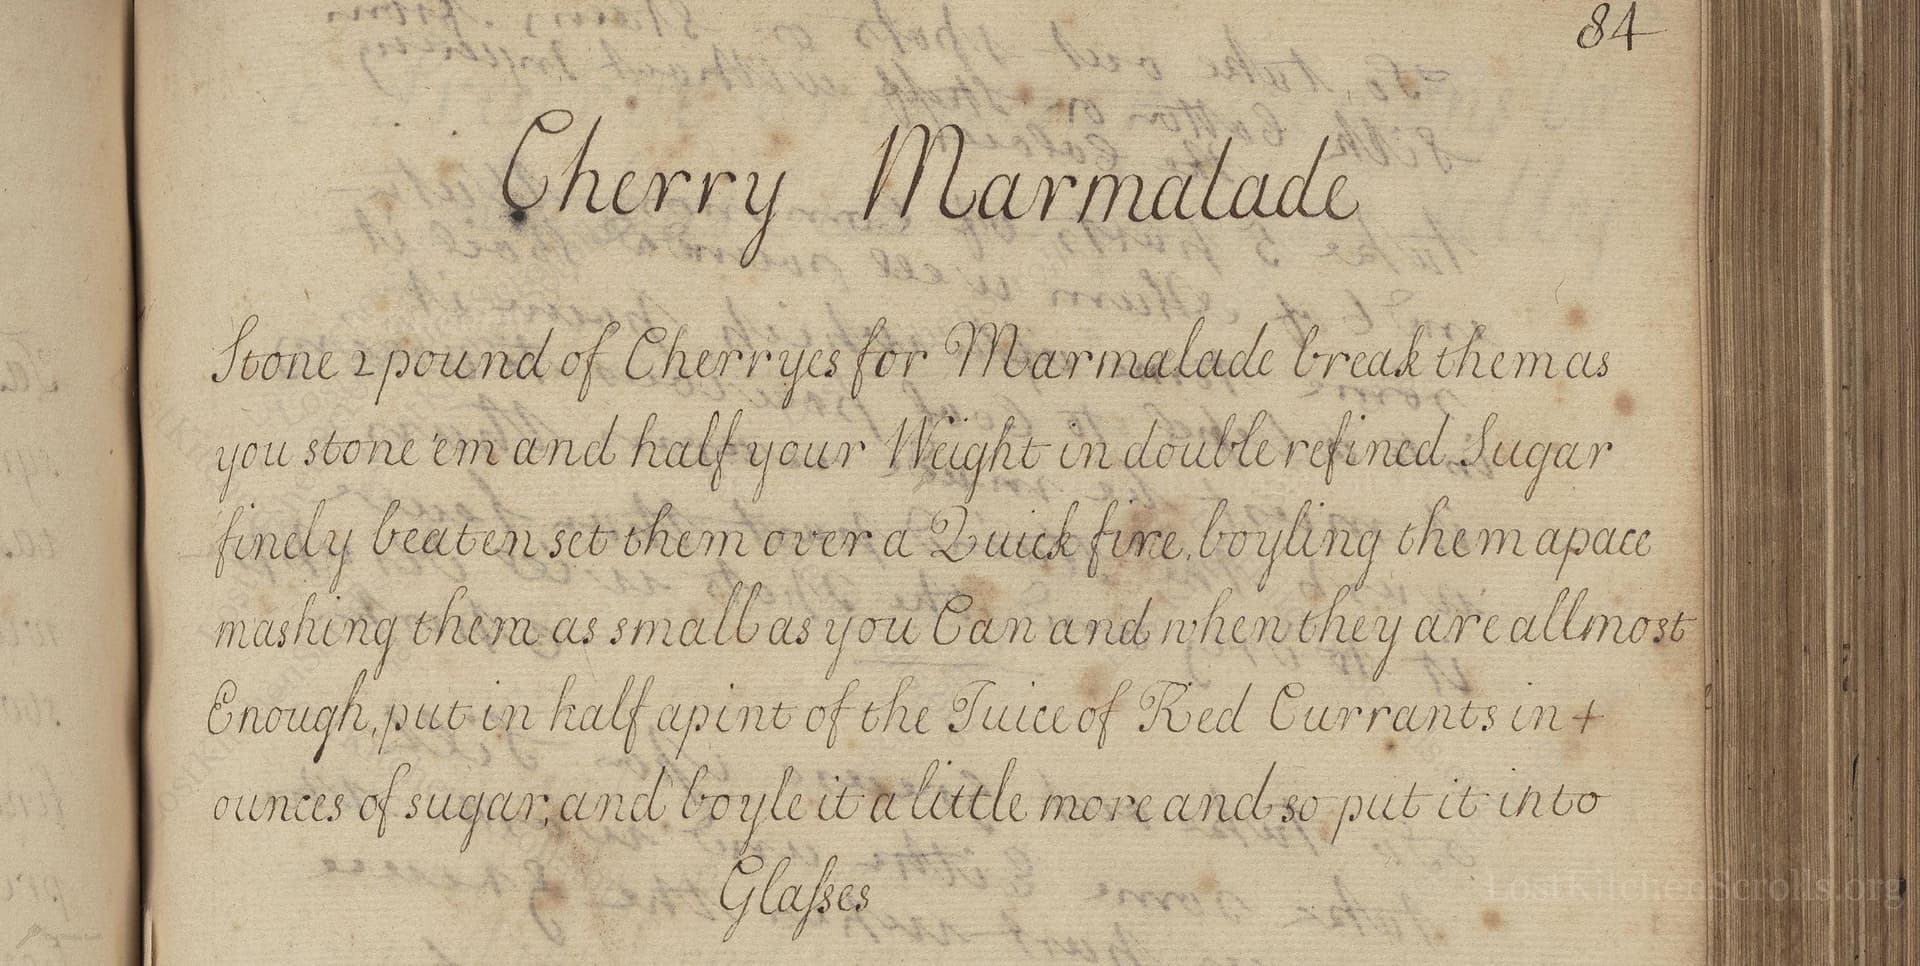 84
Cherry Marmalade
Stone 2 pound of Cherryes for Marmalade break them as
you stone 'em and half your Weight in double refined Sugar
finely beaten set them over a Quick fire, boyling them apace
mashing them as small as you Can and when they are allmost
Enough, put in half a pint of the Juice of Red Currants in 4
ounces of sugar, and boyle it a little more and so put it into
Glaſses
LostKitchenScrolls.org